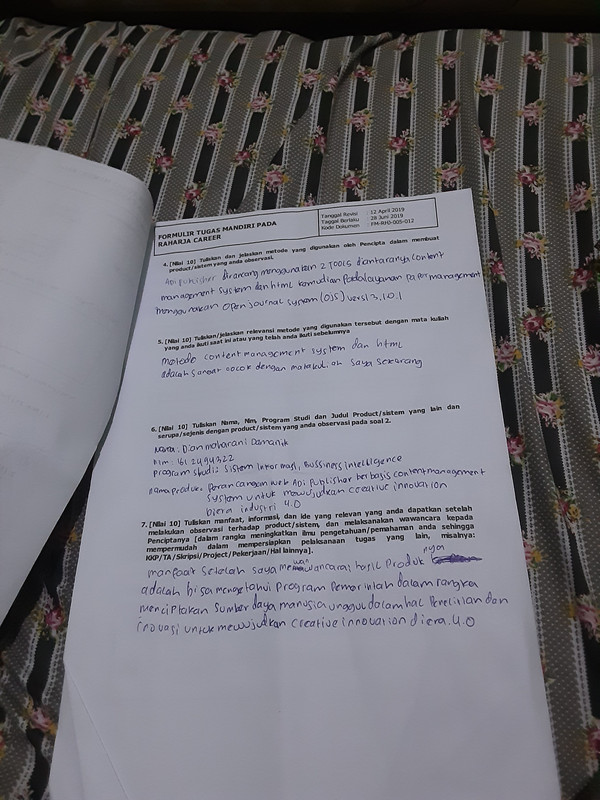 FORMULIR TUGAS MANDIRI PADA
RAHARJA CAREER
Tanggal Revisi : 12 April 2019
Taggal Berlaku : 28 Juni 2019
Kode Dokumen : FM-RHJ-005-012
4. [Nilai 10] Tuliskan dan jelaskan metode yang digunakan oleh Pencipta dalam membuat
product/sistem yang anda observasi.
Api publisher dirancang menggunakan 2 TOOLS diantaranya content
management system dan html kemudian Pada layanan Paper management
menggunakan open journal system (OJS) versi 3.1.0.1
5. [Nilai 10] Tuliskan/jelaskan relevansi metode yang digunakan tersebut dengan mata kuliah
yang anda ikuti saat ini atau yang telah anda ikuti sebelumnya
metode content management system dan html
adalah sangat cocok dengan matakuliah saya sekarang
6. [Nilai 10] Tuliskan Nama, Nim, Program Studi dan Judul Product/sistem yang lain dan
serupa/sejenis dengan product/sistem yang anda observasi pada soal 2.
Nama : Dian maharani Damanik
Nim : 1612494322
program studi : Sistem Informasi, Bussiners intelligence
nama Produk : Perancangan web Api Publisher berbasis content management
system untuk mewujudkan creative innovation
diera industri 4.0
7. [Nilai 10] Tuliskan manfaat, informasi, dan ide yang relevan yang anda dapatkan setelah
melakukan observasi terhadap product/sistem, dan melaksanakan wawancara kepada
Penciptanya [dalam rangka meningkatkan ilmu pengetahuan/pemahaman anda sehingga
mempermudah dalam mempersiapkan pelaksanaan tugas yang lain, misalnya:
KKP/TA/Skripsi/Project/Pekerjaan/Hal lainnya].
manfaat setelah saya mewawancarai hasil Produk nya
adalah bisa mengetahui Program Pemerintah dalam rangka
menciptakan sumber daya manusia unggul dalam hal Penelitian dan
inovasi untuk mewujudkan creative innovation di era 4.0